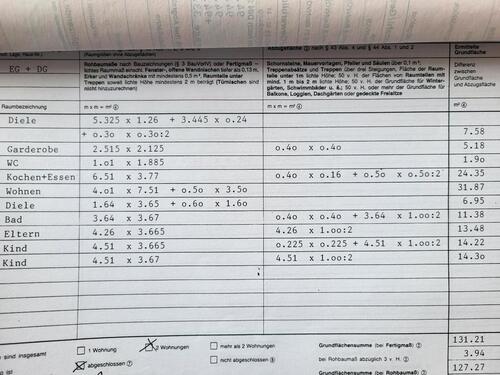 (Raumgrößen ohne Abzugsflächen)
Abzugsfläche nach § 43 Abs. 4 und § 44 Abs. 1 und 2
Ermittelte Grundfläche
EG + DG
Rohbaumaße nach Bauzeichnungen (§ 3 BauVorlV) oder Fertigmaß – lichtes Raummaß einschl. Fenster-, offene Wandnischen tiefer als 0,13 m, Erker und Wandschränke mit mindestens 0,5 m². Raumteile unter Treppen soweit lichte Höhe mindestens 2 m beträgt (Türnischen sind nicht hinzuzurechnen)
Schornsteine, Mauervorlagen, Pfeiler und Säulen über 0,1 m². Treppenabsätze und Treppen über drei Steigungen, Fläche der Raumteile unter 1m lichte Höhe; 50 v. H. der Flächen von Raumteilen mit mind. 1 m bis 2 m lichte Höhe; 50 v. H. der Fläche der Wintergärten, Schwimmbäder u. ä.; 50 v. H. oder mehr der Grundfläche für Balkone, Loggien, Dachgärten oder gedeckte Freisitze
Differenz zwischen Grundfläche und Abzugsfläche
Raumbezeichnung
m x m = m² ④
m x m = m² ④
m² ④
Diele 5.325 x 1.26 + 3.445 x o.24
+ o.3o x o.3o:2 7.58
Garderobe 2.515 x 2.125 o.4o x o.4o 5.18
WC 1.o1 x 1.885 1.9o
Kochen+Essen 6.51 x 3.77 o.4o x o.16 + o.5o x o.5o:2 24.35
Wohnen 4.o1 x 7.51 + o.5o x 3.5o 31.87
Diele 1.64 x 3.65 + o.6o x 1.6o 6.95
Bad 3.64 x 3.67 o.4o x o.4o + 3.64 x 1.oo:2 11.38
Eltern 4.26 x 3.665 4.26 x 1.oo:2 13.48
Kind 4.51 x 3.665 o.225 x o.225 + 4.51 x 1.oo:2 14.22
Kind 4.51 x 3.67 4.51 x 1.oo:2 14.3o
sind insgesamt
1 Wohnung
2 Wohnungen
mehr als 2 Wohnungen
Grundflächensumme (bei Fertigmaß) ⑦ 131.21
abgeschlossen ⑦
nicht abgeschlossen ③
bei Rohbaumaß abzüglich 3 v. H. 3.94
Grundflächensumme (bei Rohbaumaß) 127.27